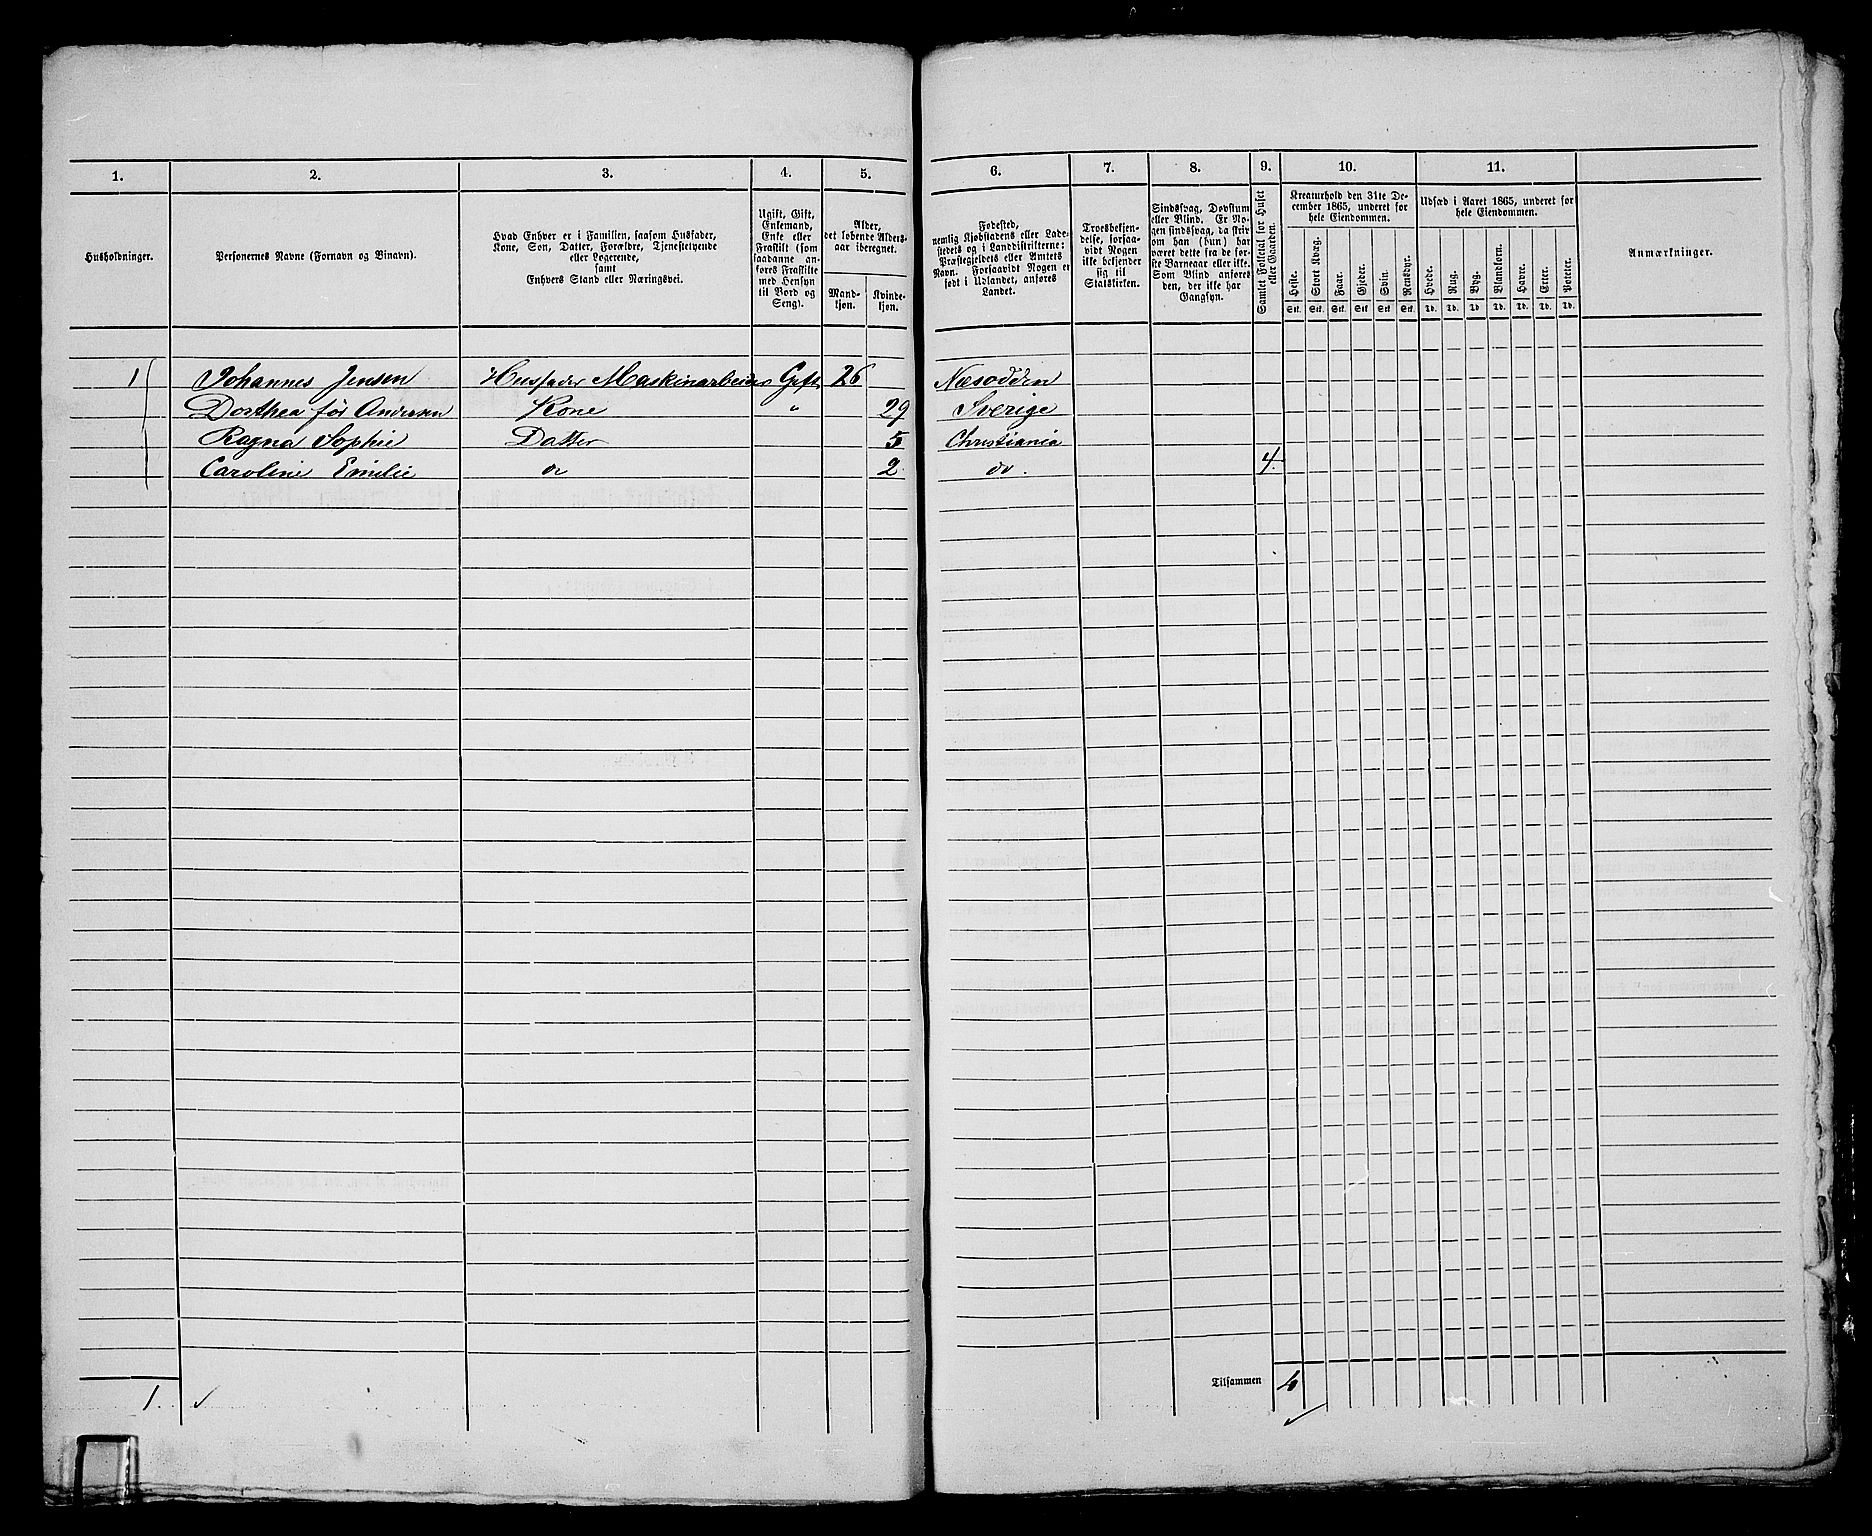 1.
2.
3.
4.
5.
6.
7.
8.
9.
10.
11.
Husholdninger.
Personernes Navne (Fornavn og Binavn).
Hvad Enhver er i Familien, saasom Husfader,
Kone, Søn, Datter, Forældre, Tjenestetyende
eller Logerende,
samt
Enhvers Stand eller Næringsvei.
Ugift, Gift,
Enkemand,
Enke eller
Fraskilt (som
saadanne an-
føres Fraskilte
med Hensyn
til Bord og
Seng).
Alder,
det løbende Alders-
aar iberegnet.
Mand-
kjøn.
Kvinde-
kjøn.
Fødested,
nemlig Kjøbstadens eller Lade-
stedets og i Landdistrikterne:
Præstegjeldets eller Amtets
Navn. Forsaavidt Nogen er
født i Udlandet, anføres
Landet.
Troesbekjen-
delse, forsaa-
vidt Nogen
ikke bekjender
sig til
Statskirken.
Sindssvag, Døvstum
eller Blind. Er No-
gen sindssvag, da skriv
om han (hun) har
været dette fra de før-
ste Barneaar eller ikke.
Som Blind anføres
den, der ikke har
Gangsyn.
Samlet Folketal for Huset
eller Gaarden.
Kreaturhold den 31te De-
cember 1865, underet for
hele Eiendommen.
Heste.
Stort Kvæg.
Faar.
Gjeder.
Svin.
Rensdyr.
Stk. Stk. Stk. Stk Stk Stk.
Udsæd i Aaret 1865, underet for
hele Eiendommen.
Hvede.
Rug.
Byg.
Blandkorn.
Havre.
Erter.
Poteter.
Td. Td. Td Td. Td. Td. Td.
Anmærkninger.
1 Johannes Jensen Husfader Maskinarbeider Gift 26 Næsodden
Dorthea för Andersen Kone " 29 Sverige
Ragna Sophie Datter 5 Christiania
Caroline Emilie do 2 do. 4.
1.
Tilsammen 4